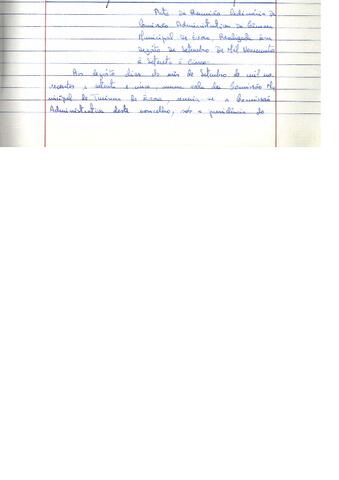 Acta da Reunião Ordinária da
Comissão Administrativa da Câmara
Municipal de Évora Realizada em
dezoito de Setembro de Mil Novecentos
e Setenta e Cinco
Aos dezoito dias do mês de Setembro de mil no-
vecentos e setenta e cinco, numa sala da Comissão Mu-
nicipal de Turismo de Évora, reuniu-se a Comissão
Administrativa deste concelho, sob a presidência do